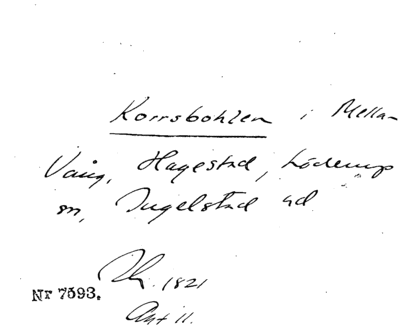 Korrsbohlen i Mella-
Vång, Hagestad, Löderup
sn, Ingelstad hd
1821
Nr 7593.
Akt 11.